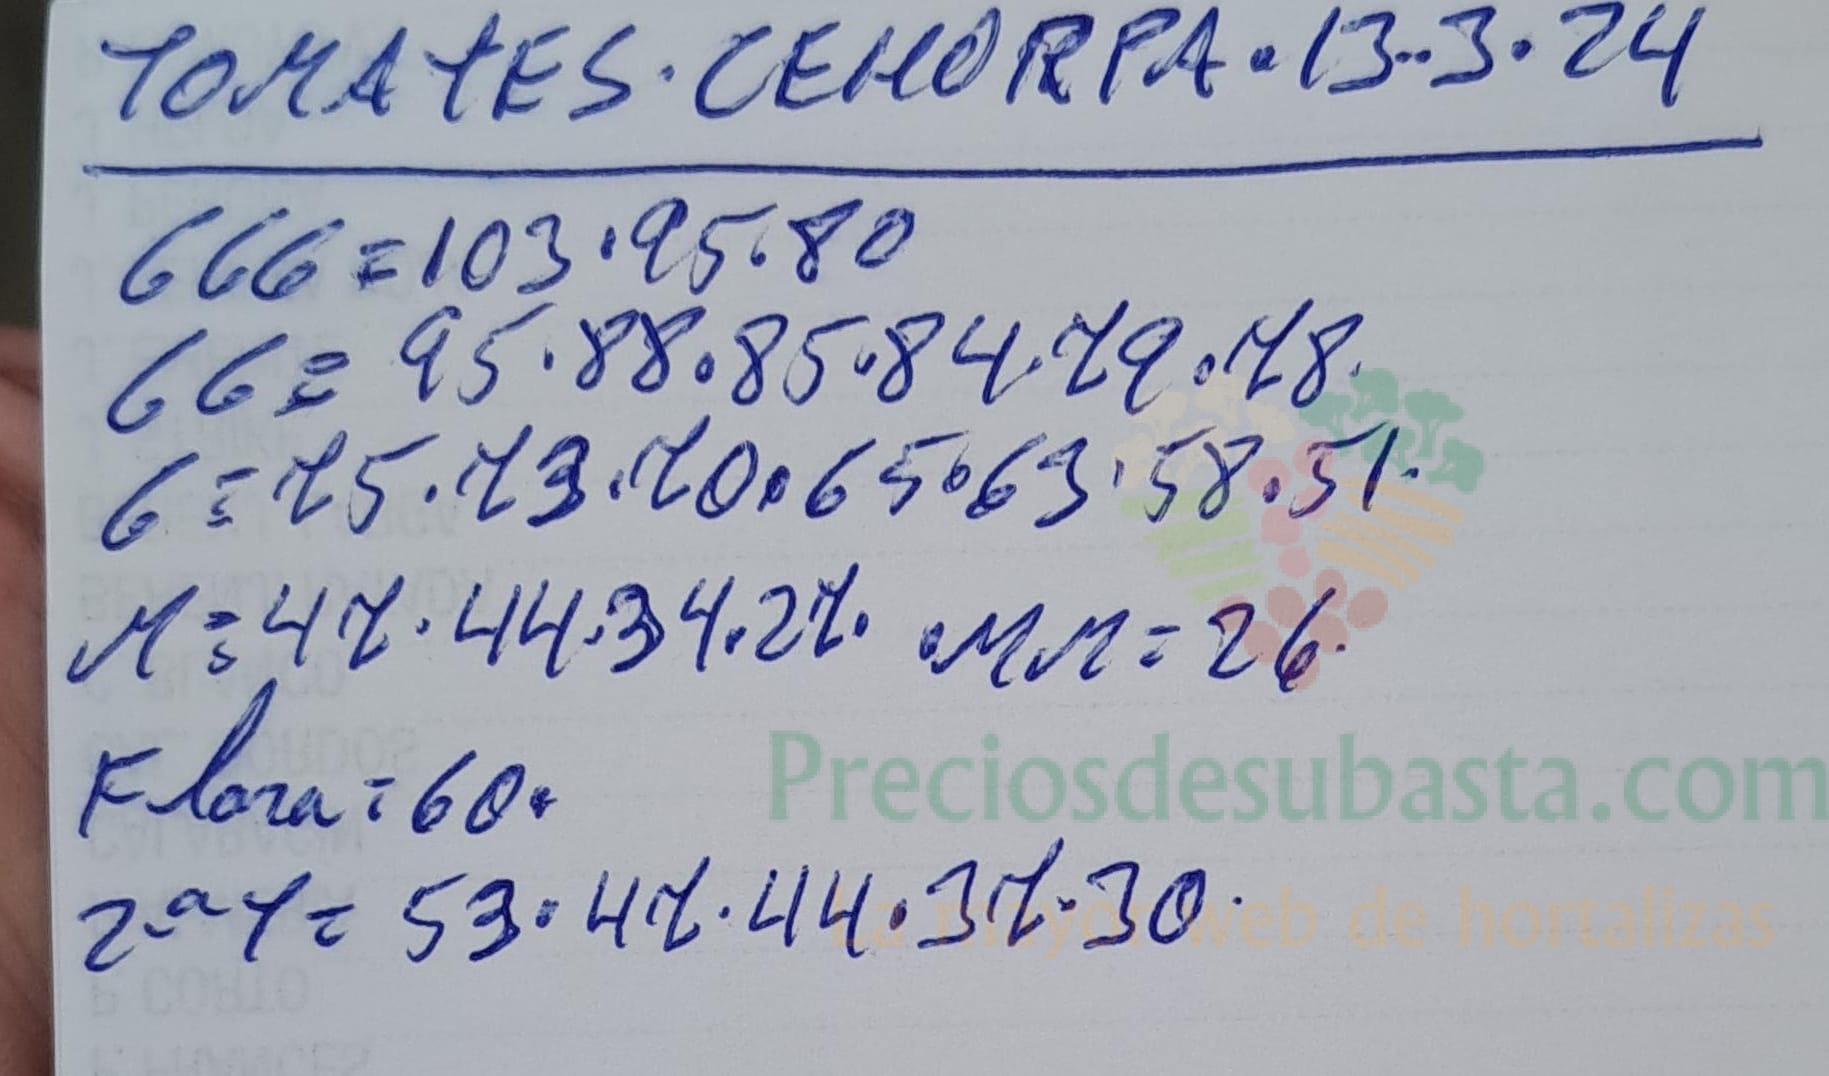 TOMATES · CEHORPA · 13 · 3 · 24
666 = 103 · 95 · 80
66 = 95 · 88 · 85 · 84 · 79 · 78 ·
6 = 75 · 73 · 70 · 65 · 63 · 58 · 51 ·
M = 47 · 44 · 34 · 27 · · MM = 26 ·
Flora = 60 ·
Preciosdesubasta.com
2ª T = 53 · 47 · 44 · 37 · 30 ·
La mayor web de hortalizas